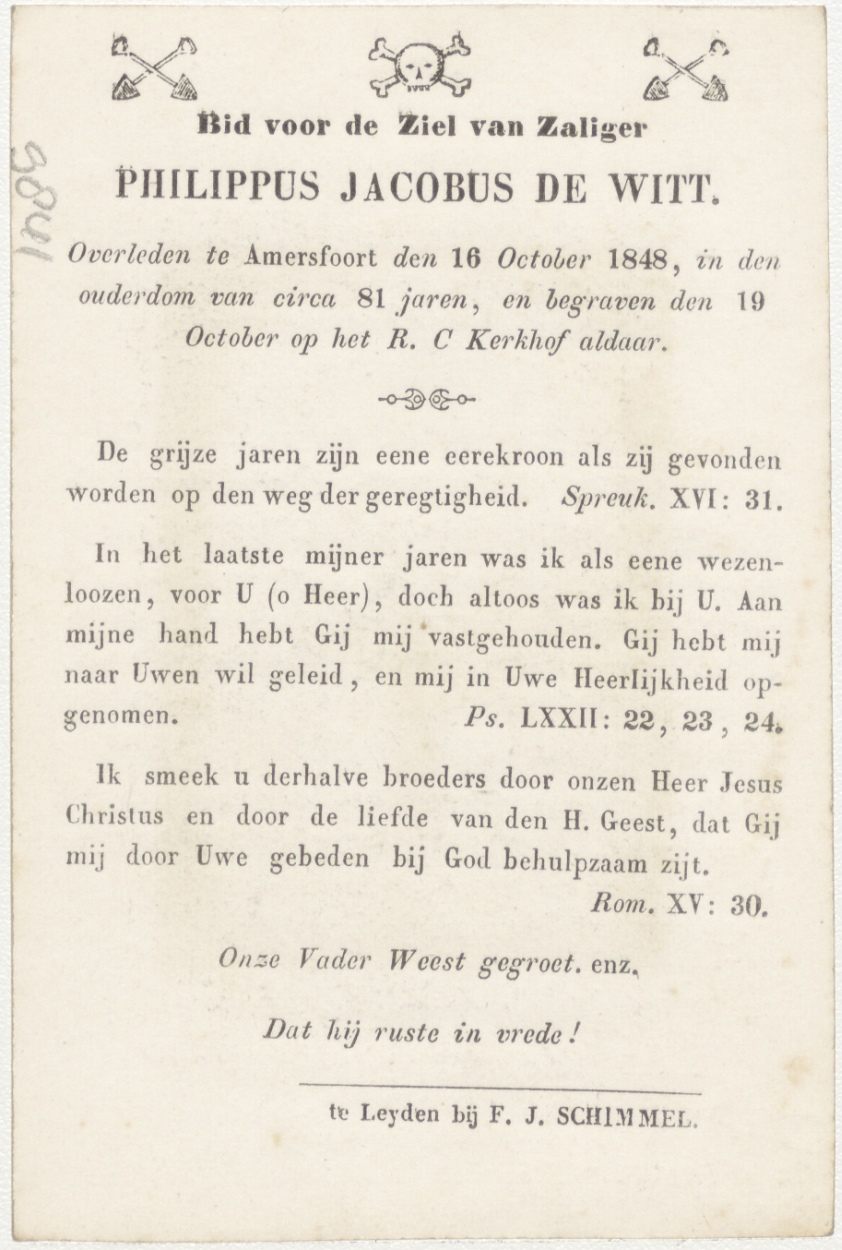 Bid voor de Ziel van Zaliger
PHILIPPUS JACOBUS DE WITT.
Overleden te Amersfoort den 16 October 1848, in den
ouderdom van circa 81 jaren, en begraven den 19
October op het R. C Kerkhof aldaar.
De grijze jaren zijn eene eerekroon als zij gevonden
worden op den weg der geregtigheid. Spreuk. XVI: 31.
In het laatste mijner jaren was ik als eene wezen-
loozen, voor U (o Heer), doch altoos was ik bij U. Aan
mijne hand hebt Gij mij vastgehouden. Gij hebt mij
naar Uwen wil geleid, en mij in Uwe Heerlijkheid op-
genomen. Ps. LXXII: 22, 23, 24.
Ik smeek u derhalve broeders door onzen Heer Jesus
Christus en door de liefde van den H. Geest, dat Gij
mij door Uwe gebeden bij God behulpzaam zijt.
Rom. XV: 30.
Onze Vader Weest gegroet. enz.
Dat hij ruste in vrede!
te Leyden bij F. J. SCHIMMEL.